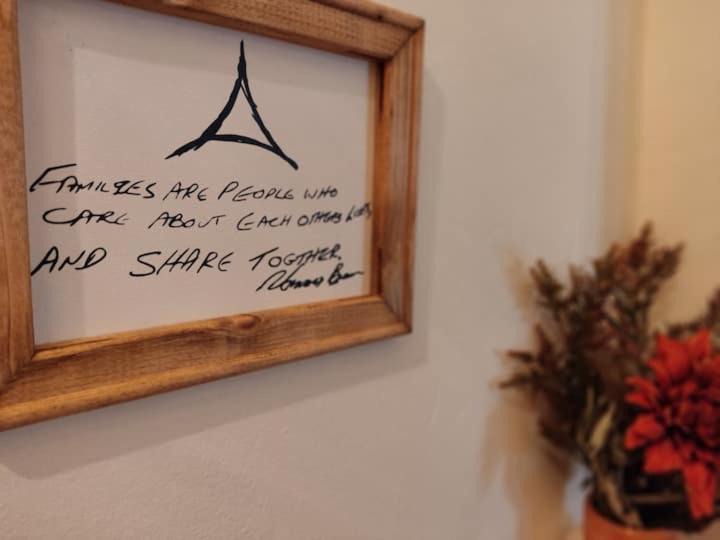 FAMILIES ARE PEOPLE WHO
CARE ABOUT EACH OTHERS
AND SHARE TOGETHER.